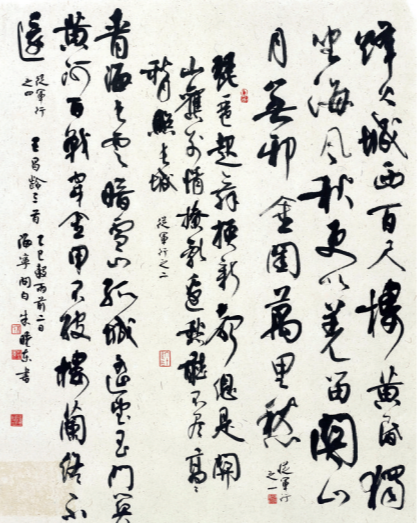 烽火城西百尺樓黄昏獨
坐海風秋更吹羌笛關山
月無那金閨萬里愁
從軍行
之一
琵琶起舞換新聲總是關
山舊別情撩亂邊愁聽不盡高高
秋月照長城
從軍行之二
青海長雲暗雪山孤城遥望玉門關
黄河百戰穿金甲不破樓蘭終不
還
從軍行
之四
王昌齡三首
乙巳穀雨前二日
海寧朱曉东書